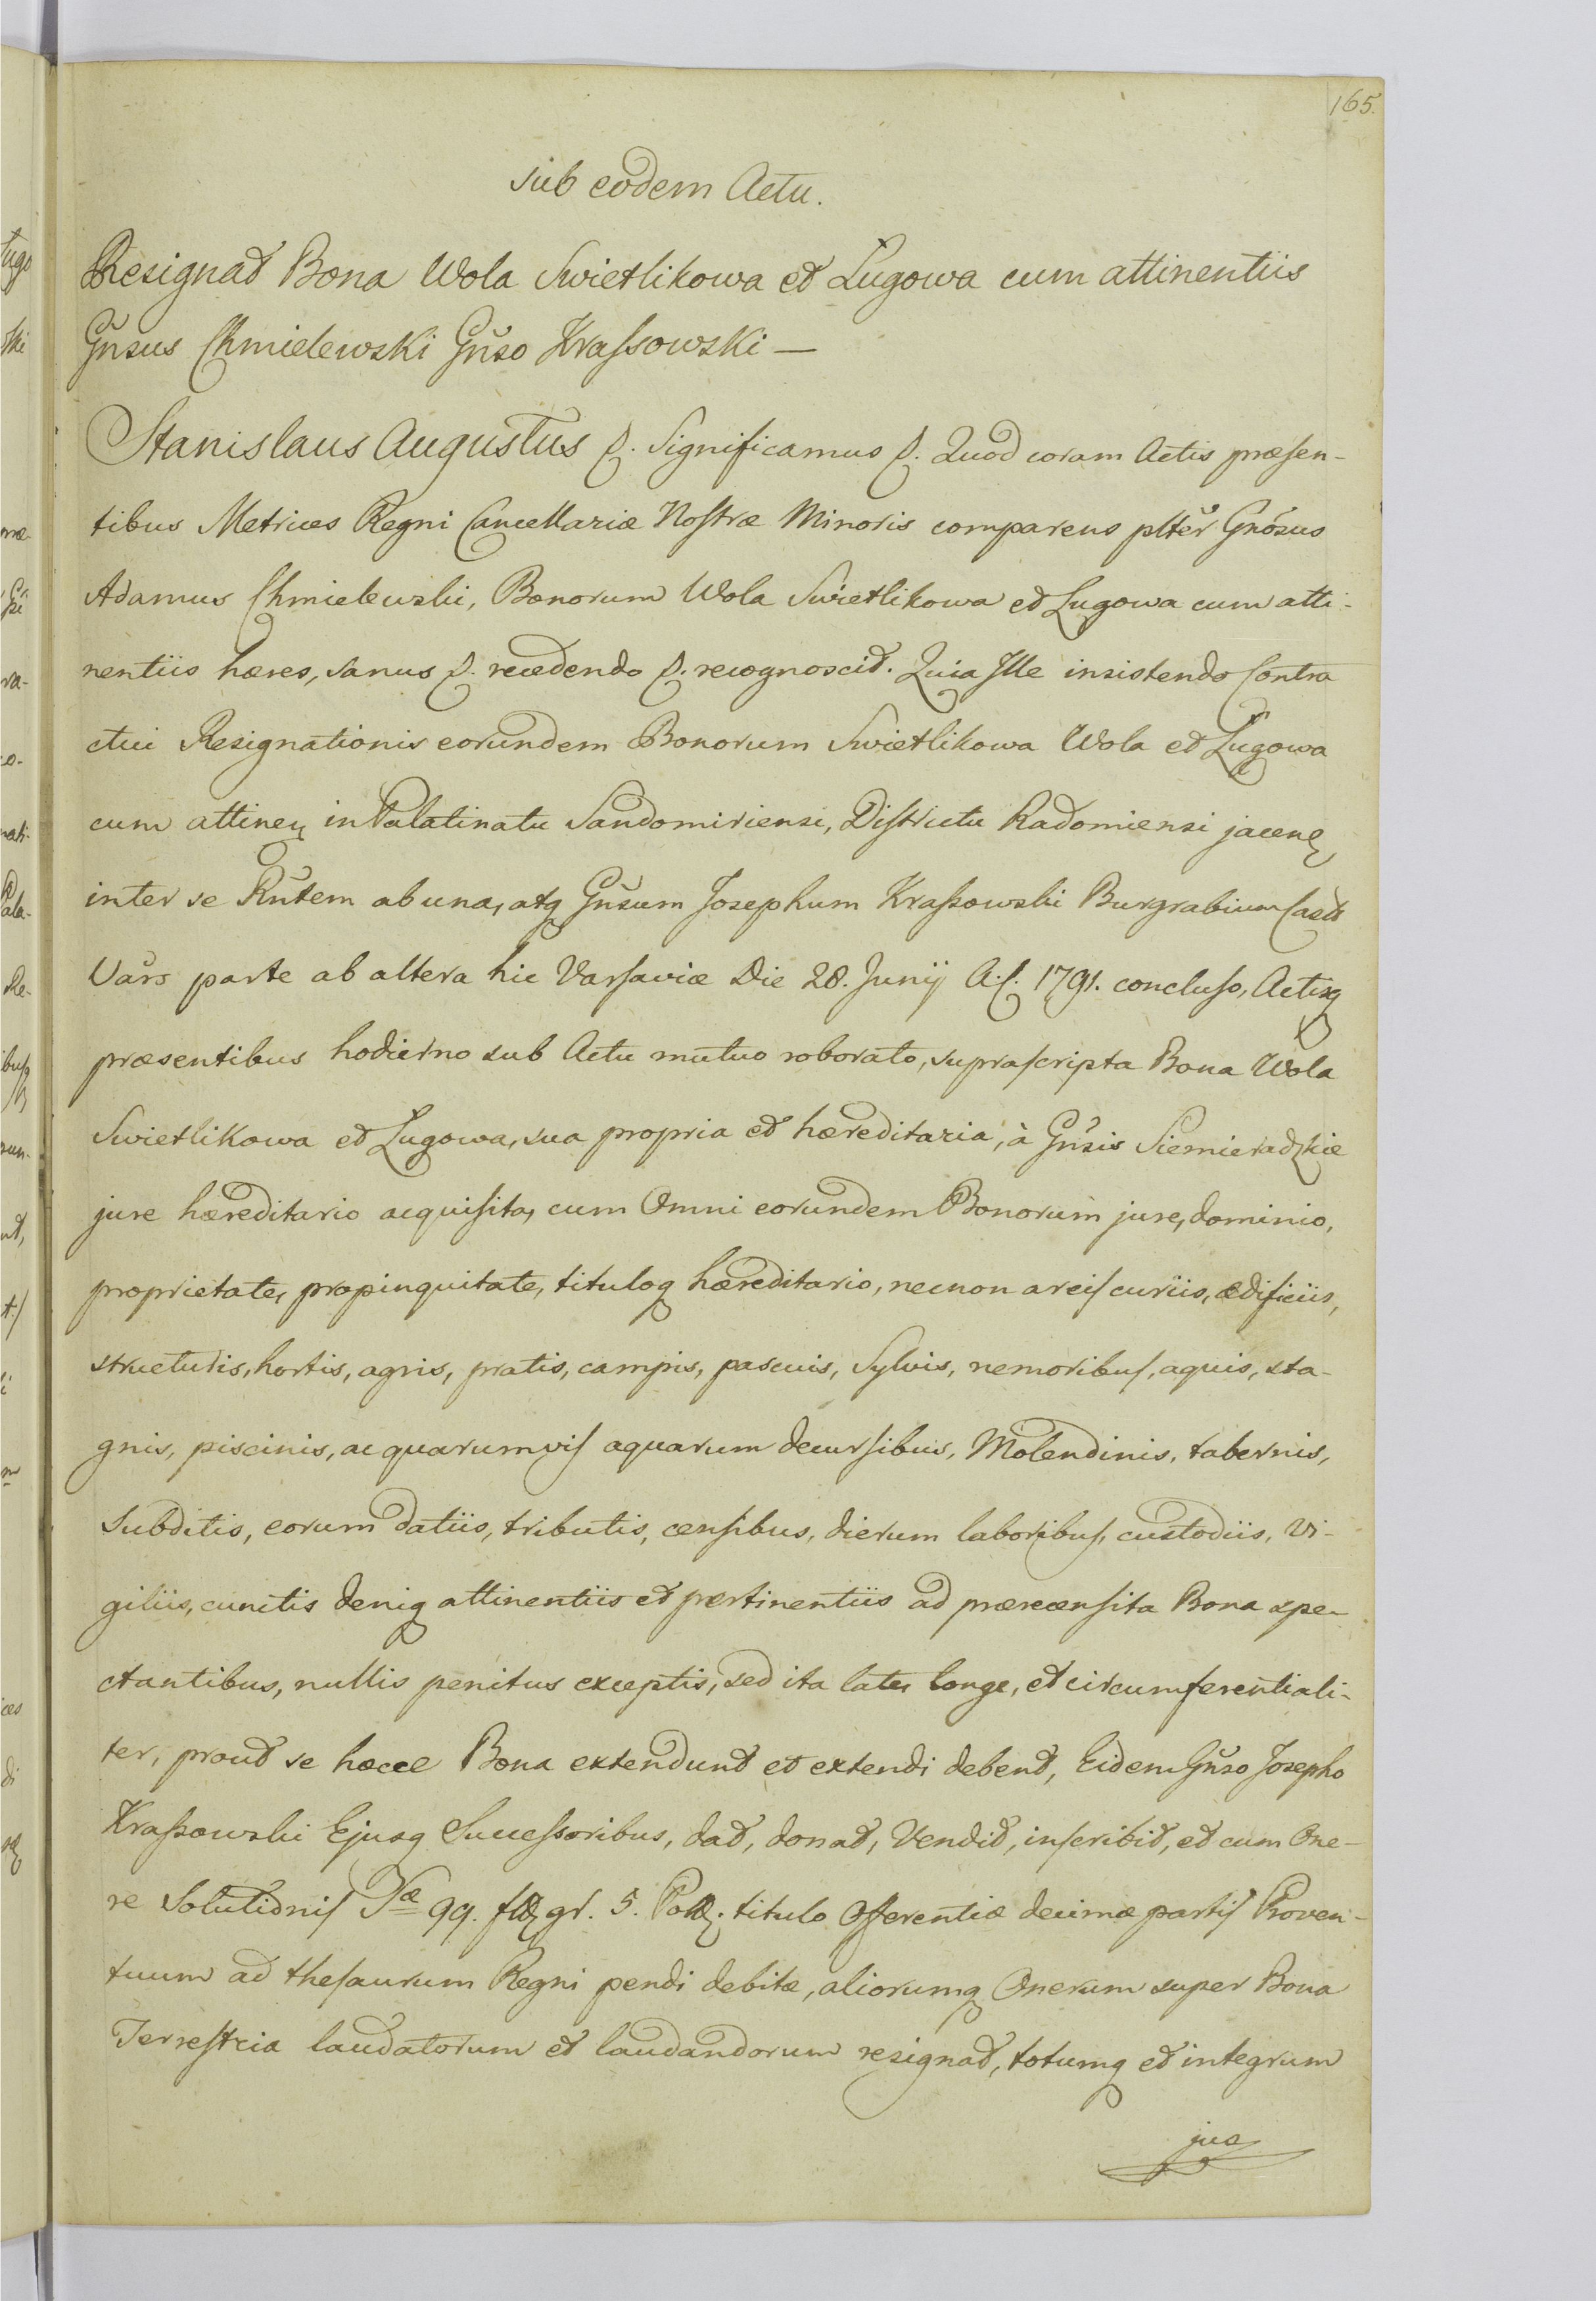 165.
sub eodem Actu.
Resignat Bona Wola Swietlikowa et Lugowa cum attinentiis
Gnsus Chmielewski Gnso Krassowski —
Stanislaus Augustus p. Significamus p. Quod coram Actis præsen-
tibus Metrices Regni Cancellariæ Nostræ Minoris comparens plter Gnosus
Adamus Chmielewski, Bonorum Wola Swietlikowa et Lugowa cum atti-
nentiis hæres, sanus p. recedendo p. recognoscit. Quia Ille insistendo Contra
ctui Resignationis eorundem Bonorum Swietlikowa Wola et Lugowa
cum attinen in Palatinatu Sandomiriensi, Districtu Radomiensi jacen
inter se Rntem ab una, atq Gnsum Josephum Krassowski Burgrabium Castr
Vars parte ab altera hic Varsaviæ Die 28. Junij A. C. 1791. concluso, Actisq
præsentibus hodierno sub Actu mutuo roborato, suprascripta Bona Wola
Swietlikowa et Lugowa, sua propria et hæreditaria, à Gnsis Siemieradzkie
jure hæreditario acquisita, cum Omni eorundem Bonorum jure, dominio,
proprietate, propinquitate, tituloq hæreditario, necnon areis curiis, ædificiis,
structuris, hortis, agris, pratis, campis, pascuis, Sylvis, nemoribus, aquis, sta-
gnis, piscinis, ac quarumvis aquarum decursibus, Molendinis, tabernis,
Subditis, eorum datiis, tributis, censibus, dierum laboribus, custodiis, vi-
giliis, cunctis deniq attinentiis et pertinentiis ad præcensita Bona spe-
ctantibus, nullis penitus exceptis, sed ita late, longe, et circumferentiali-
ter, prout se hæcce Bona extendunt et extendi debent, Eidem Gnso Josepho
Krassowski Ejusq Successoribus, dat, donat, Vendit, inscribit, et cum One-
re Solutionis Sæ 99. fl gr. 5. Pol. titulo Offerentiæ decimæ partis Proven-
tuum ad thesaurum Regni pendi debitæ, aliorumq Onerum super Bona
Terrestria laudatorum et laudandorum resignat, totumq et integrum
jus